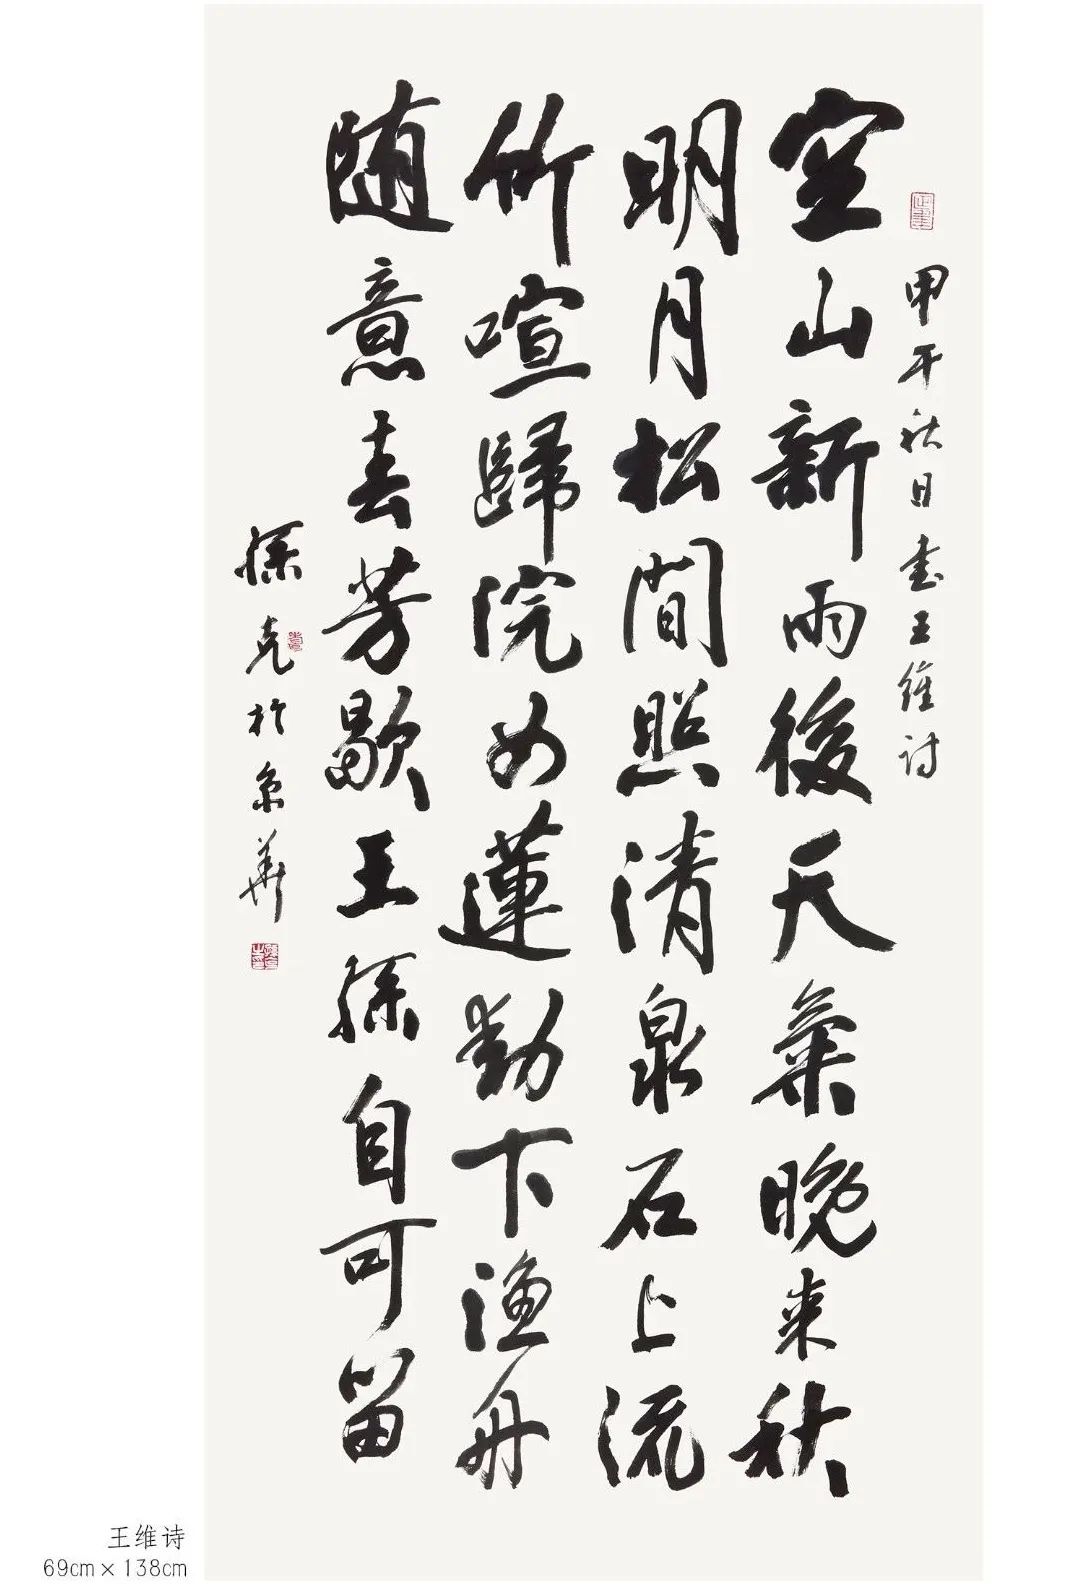 甲午秋日書王維诗
空山新雨後天氣晚来秋
明月松間照清泉石上流
竹喧歸浣女蓮動下渔舟
随意春芳歇王孫自可留
孫克於京華
王维诗
69cm×138cm